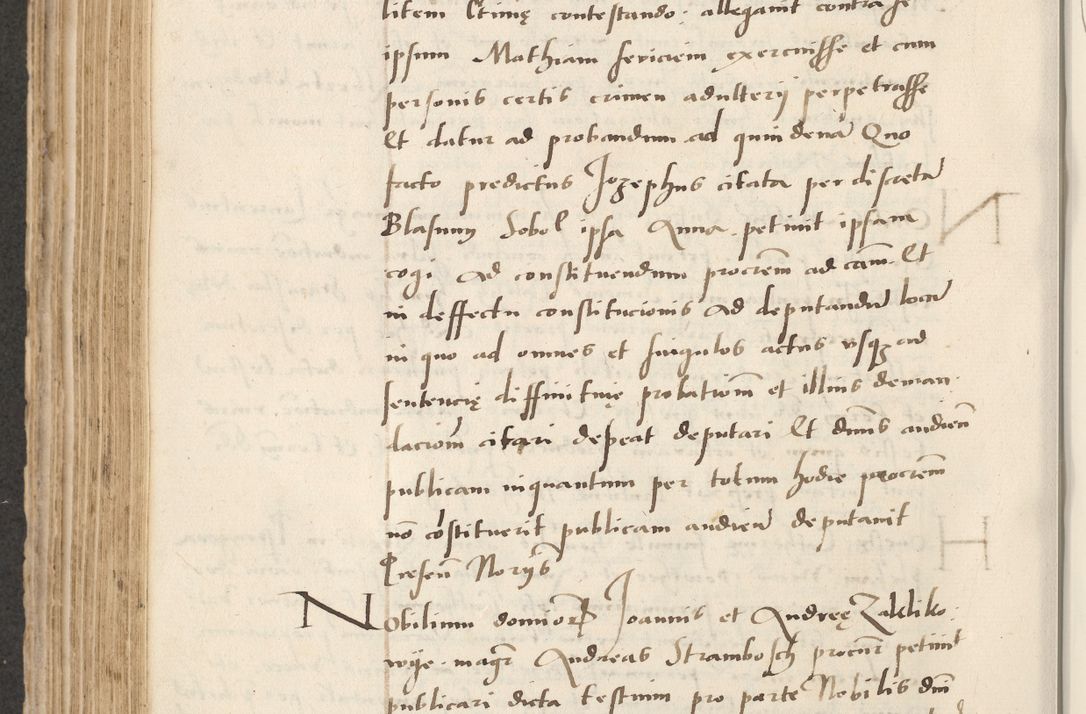 litem Ctinię contestando. allegavit contra se
ipsum Mathiam seviciem exercuisse et cum
personis certis crimen adulterij perpetrasse
Et datur ad probandum ad quindena Quo
facto predictus Jozephus citata per discretu
Blasium Sobol ipsa Anna petivit ipsam
cogi ad constituendum procrem ad cam. Et
in deffectu constitucionis ad deputandu locu
in quo ad omnes et singulos actus usq ad
sentencię diffinitivę probationem et illius deman
dacionem citari debeat deputari Et dnus audien
publicam inquantum per totum hodie procrem
no costituerit publicam audien deputavit
Presen Norys
Nobilium domior Joannis et Andreę Zakliko
wye magr Andreas Strambosch procur petivit
publicari dicta testium pro parte Nobilis dni